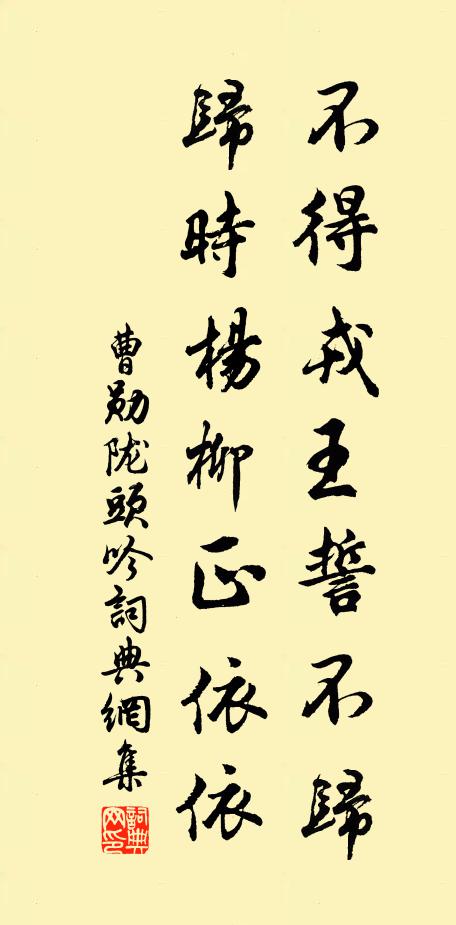 不得戎王誓不歸
歸時楊柳正依依
曹勛陇頭吟詞典網集
詞典网印